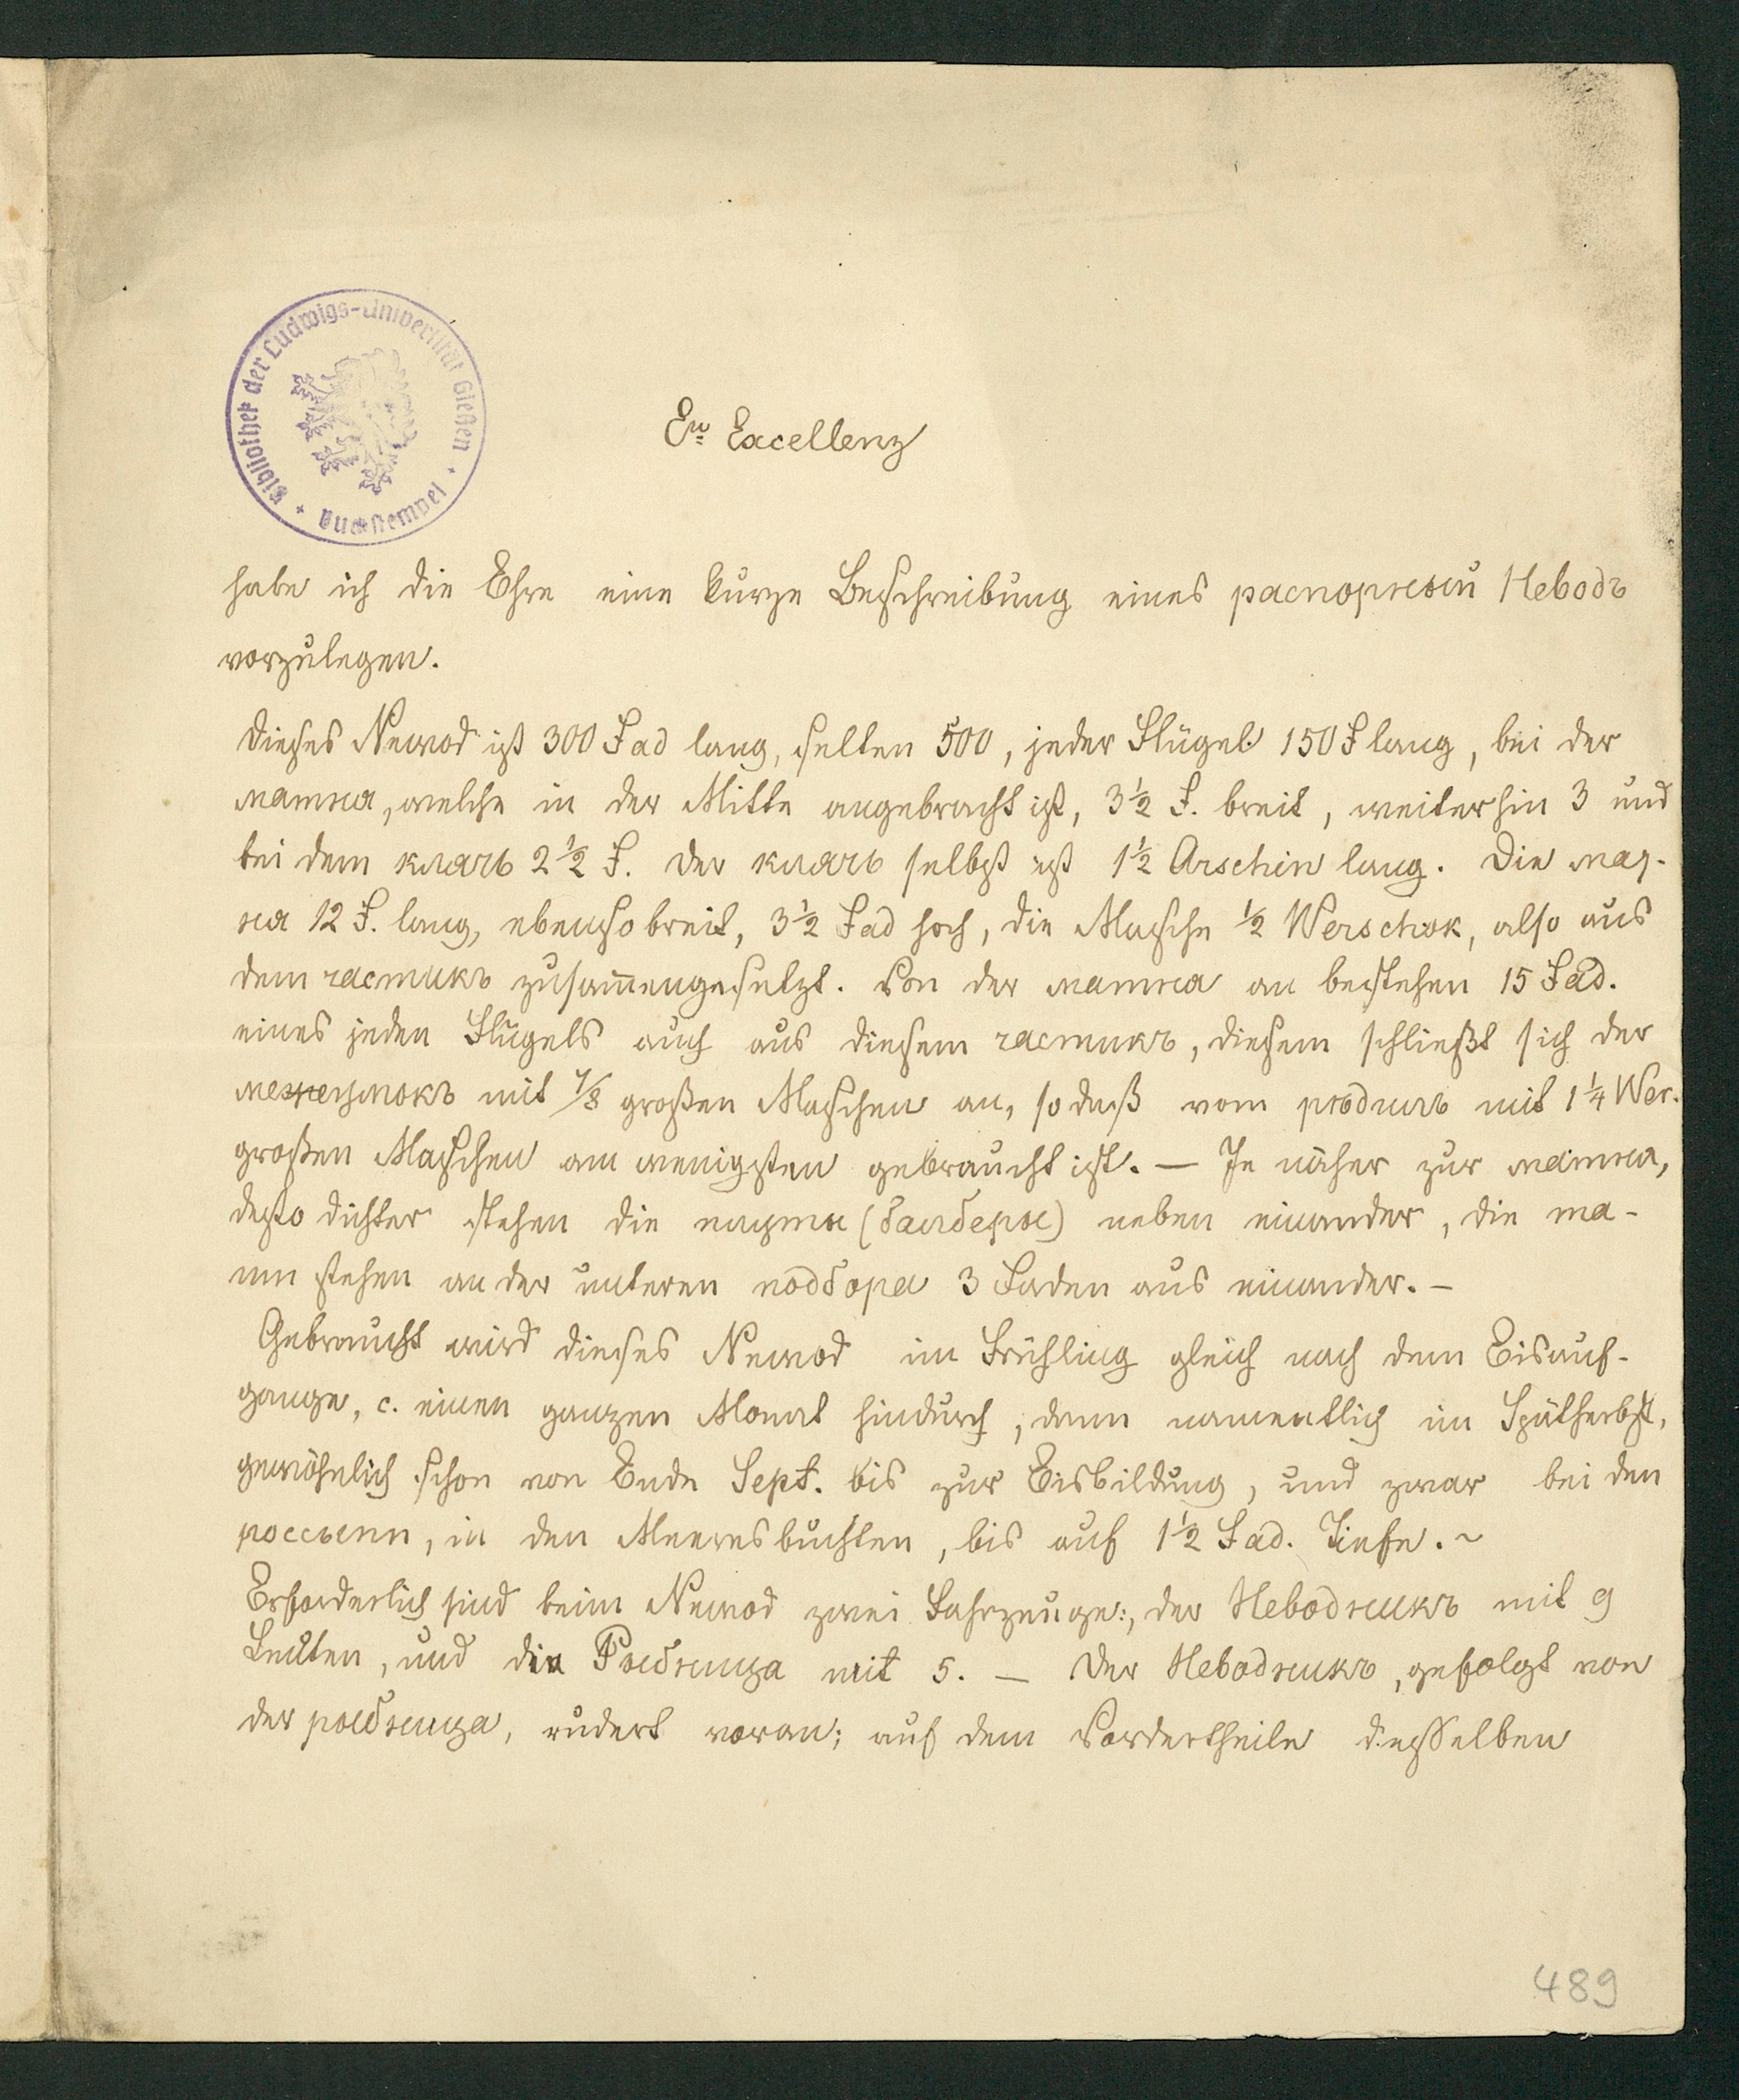 Bibliothek der Ludwigs-Universität Gießen
Buchstempel
Ew Excellenz
habe ich die Ehre eine kurze Beschreibung eines распорный Неводъ
vorzulegen.
Dieses Newod ist 300 Fad lang, selten 500, jeder Flügel 150 F lang, bei der
матня, welche in der Mitte angebracht ist, 3½ F. breit, weiterhin 3 und
bei dem клячъ 2½ F. Der клячъ selbst ist 1½ Arschin lang. Die мат-
ня 12 F. lang, ebenso breit, 3½ Fad hoch, die Masche ½ Werschok, also aus
dem частикъ zusammengesetzt. Von der матня an bestehen 15 Fad.
eines jeden Flügels auch aus diesem частикъ, diesem schließt sich der
межеумокъ mit 7/8 großen Maschen an, so daß vom рѣдиль mit 1¼ Wer.
großen Maschen am wenigsten gebraucht ist. — Je näher zur матня,
desto dichter stehen die (балберы) neben einander, die та-
ши stehen an der unteren подбора 3 Faden aus einander. —
Gebraucht wird dieses Newod im Frühling gleich nach dem Eisauf-
gange, c. einen ganzen Monat hindurch, dann namentlich im Spätherbst,
gewöhnlich schon von Ende Sept. bis zur Eisbildung, und zwar bei den
россыпи, in den Meeresbuchten, bis auf 1½ Fad. Tiefe. ~
Erforderlich sind beim Newod zwei Fahrzeuge:, der Неводникъ mit 9
Leuten, und die Рыбница mit 5. — Der Неводникъ, gefolgt von
der рыбница, rudert voran; auf dem Vordertheile desselben
489